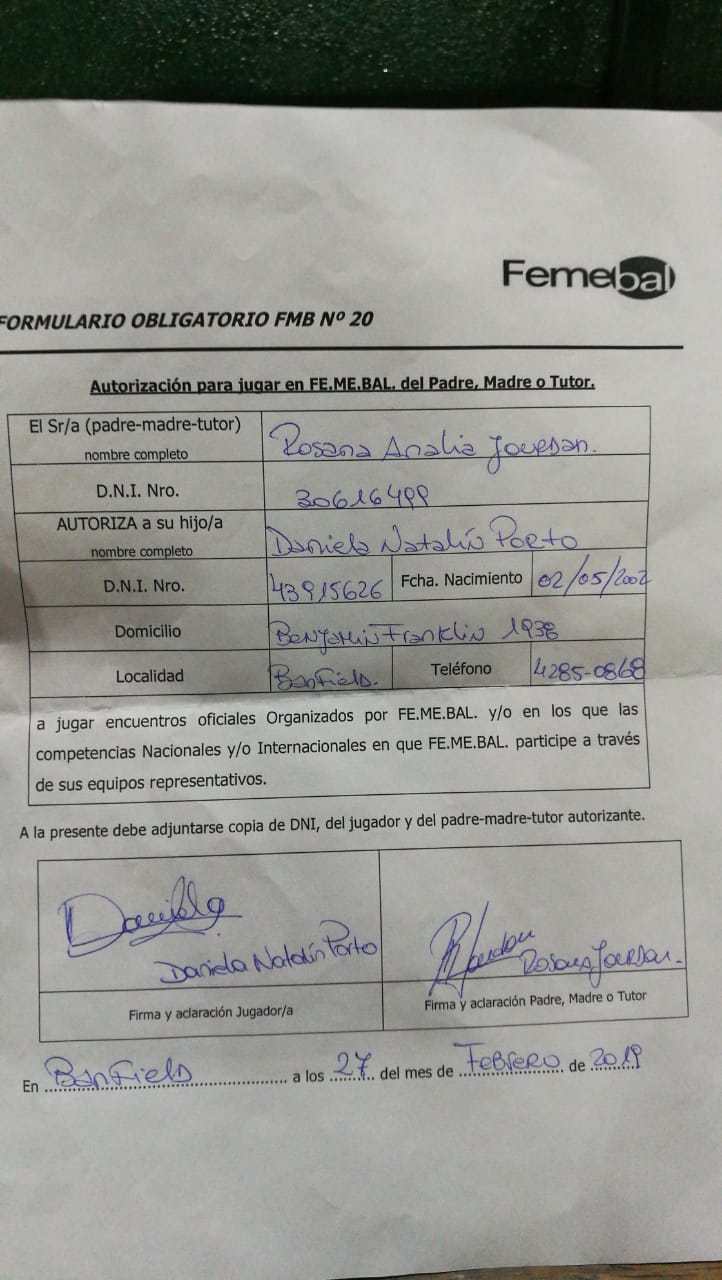 Femebal
FORMULARIO OBLIGATORIO FMB Nº 20
Autorización para jugar en FE.ME.BAL. del Padre, Madre o Tutor.
El Sr/a (padre-madre-tutor)
nombre completo
Rosana Analia Jourdan.
D.N.I. Nro.
30616499
AUTORIZA a su hijo/a
nombre completo
Daniela Natalín Porto
D.N.I. Nro.
43915626
Fcha. Nacimiento
02/05/2002
Domicilio
Benjamin Franklin 1938
Localidad
Banfield.
Teléfono
4285-0868
a jugar encuentros oficiales Organizados por FE.ME.BAL. y/o en los que las
competencias Nacionales y/o Internacionales en que FE.ME.BAL. participe a través
de sus equipos representativos.
A la presente debe adjuntarse copia de DNI, del jugador y del padre-madre-tutor autorizante.
Daniela
Daniela Natalín Porto
Firma y aclaración Jugador/a
RJourdan
Rosana Jourdan.
Firma y aclaración Padre, Madre o Tutor
En Banfield a los 27 del mes de Febrero de 2019